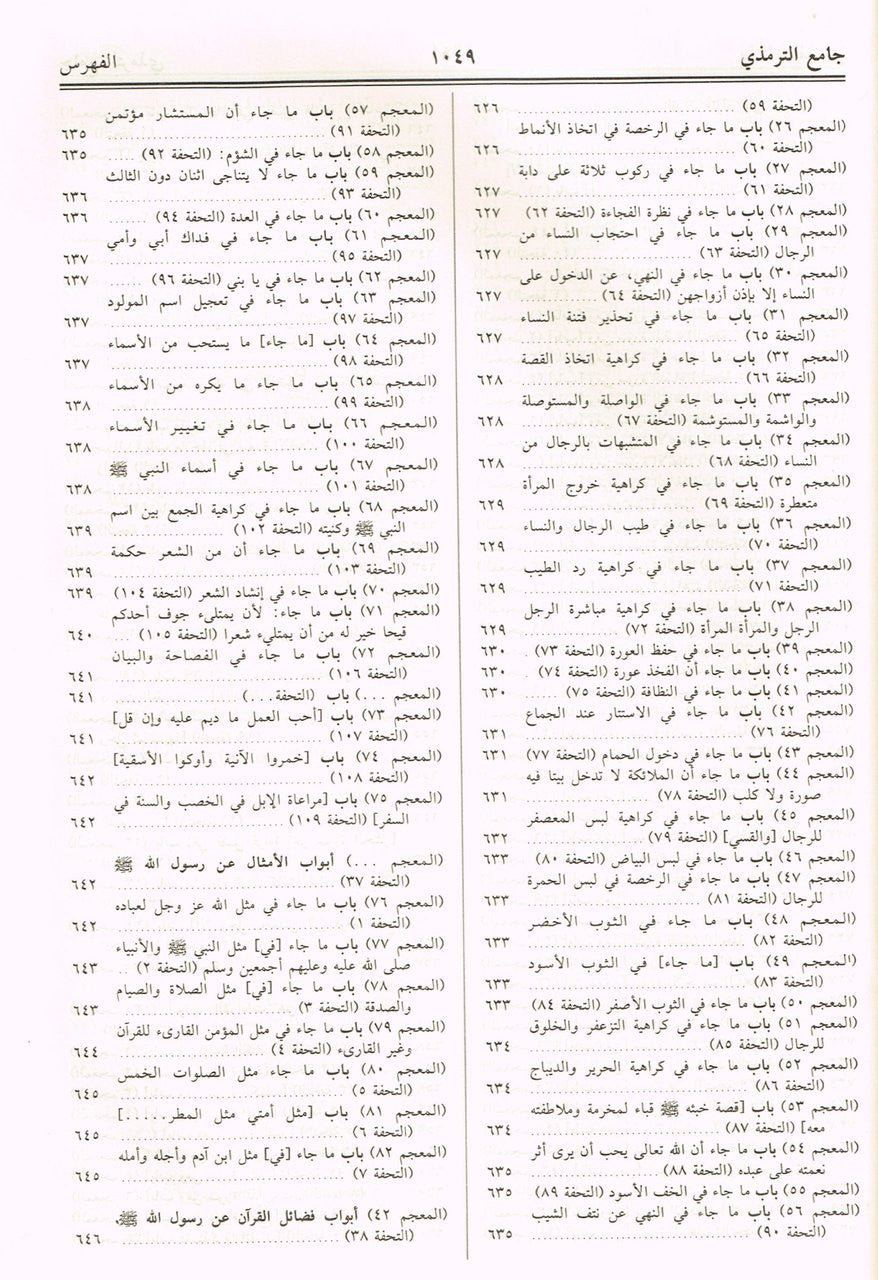 جامع الترمذي
١٠٤٩
الفهرس
(التحفة ٥٩) ........................ ٦٢٦
(المعجم ٢٦) باب ما جاء في الرخصة في اتخاذ الأنماط
(التحفة ٦٠) ........................ ٦٢٦
(المعجم ٢٧) باب ما جاء في ركوب ثلاثة على دابة
(التحفة ٦١) ........................ ٦٢٧
(المعجم ٢٨) باب ما جاء في نظرة الفجاءة (التحفة ٦٢) ٦٢٧
(المعجم ٢٩) باب ما جاء في احتجاب النساء من
الرجال (التحفة ٦٣) ................ ٦٢٧
(المعجم ٣٠) باب ما جاء في النهي، عن الدخول على
النساء إلا بإذن أزواجهن (التحفة ٦٤) .... ٦٢٧
(المعجم ٣١) باب ما جاء في تحذير فتنة النساء
(التحفة ٦٥) ........................ ٦٢٧
(المعجم ٣٢) باب ما جاء في كراهية اتخاذ القصة
(التحفة ٦٦) ........................ ٦٢٨
(المعجم ٣٣) باب ما جاء في الواصلة والمستوصلة
والواشمة والمستوشمة (التحفة ٦٧) ...... ٦٢٨
(المعجم ٣٤) باب ما جاء في المتشبهات بالرجال من
النساء (التحفة ٦٨) ................ ٦٢٨
(المعجم ٣٥) باب ما جاء في كراهية خروج المرأة
متعطرة (التحفة ٦٩) ................ ٦٢٩
(المعجم ٣٦) باب ما جاء في طيب الرجال والنساء
(التحفة ٧٠) ........................ ٦٢٩
(المعجم ٣٧) باب ما جاء في كراهية رد الطيب
(التحفة ٧١) ........................ ٦٢٩
(المعجم ٣٨) باب ما جاء في كراهية مباشرة الرجل
الرجل والمرأة المرأة (التحفة ٧٢) ........ ٦٢٩
(المعجم ٣٩) باب ما جاء في حفظ العورة (التحفة ٧٣) . ٦٣٠
(المعجم ٤٠) باب ما جاء أن الفخذ عورة (التحفة ٧٤) . ٦٣٠
(المعجم ٤١) باب ما جاء في النظافة (التحفة ٧٥) ..... ٦٣٠
(المعجم ٤٢) باب ما جاء في الاستتار عند الجماع
(التحفة ٧٦) ........................ ٦٣١
(المعجم ٤٣) باب ما جاء في دخول الحمام (التحفة ٧٧) ٦٣١
(المعجم ٤٤) باب ما جاء أن الملائكة لا تدخل بيتا فيه
صورة ولا كلب (التحفة ٧٨) .......... ٦٣١
(المعجم ٤٥) باب ما جاء في كراهية لبس المعصفر
للرجال [والقسي] (التحفة ٧٩) ........ ٦٣٢
(المعجم ٤٦) باب ما جاء في لبس البياض (التحفة ٨٠) . ٦٣٣
(المعجم ٤٧) باب ما جاء في الرخصة في لبس الحمرة
للرجال (التحفة ٨١) ................ ٦٣٣
(المعجم ٤٨) باب ما جاء في الثوب الأخضر
(التحفة ٨٢) ........................ ٦٣٣
(المعجم ٤٩) باب [ما جاء] في الثوب الأسود
(التحفة ٨٣) ........................ ٦٣٣
(المعجم ٥٠) باب ما جاء في الثوب الأصفر (التحفة ٨٤) ٦٣٣
(المعجم ٥١) باب ما جاء في كراهية التزعفر والخلوق
للرجال (التحفة ٨٥) ................ ٦٣٤
(المعجم ٥٢) باب ما جاء في كراهية الحرير والديباج
(التحفة ٨٦) ........................ ٦٣٤
(المعجم ٥٣) باب [قصة خبئه ﷺ قباء لمخرمة وملاطفته
معه] (التحفة ٨٧) .................. ٦٣٤
(المعجم ٥٤) باب ما جاء أن الله تعالى يحب أن يرى أثر
نعمته على عبده (التحفة ٨٨) .......... ٦٣٥
(المعجم ٥٥) باب ما جاء في الخف الأسود (التحفة ٨٩) ٦٣٥
(المعجم ٥٦) باب ما جاء في النهي عن نتف الشيب
(التحفة ٩٠) ........................ ٦٣٥
(المعجم ٥٧) باب ما جاء أن المستشار مؤتمن
(التحفة ٩١) ........................ ٦٣٥
(المعجم ٥٨) باب ما جاء في الشؤم: (التحفة ٩٢) ..... ٦٣٥
(المعجم ٥٩) باب ما جاء لا يتناجى اثنان دون الثالث
(التحفة ٩٣) ........................ ٦٣٦
(المعجم ٦٠) باب ما جاء في العدة (التحفة ٩٤) ....... ٦٣٦
(المعجم ٦١) باب ما جاء في فداك أبي وأمي
(التحفة ٩٥) ........................ ٦٣٧
(المعجم ٦٢) باب ما جاء في يا بني (التحفة ٩٦) ...... ٦٣٧
(المعجم ٦٣) باب ما جاء في تعجيل اسم المولود
(التحفة ٩٧) ........................ ٦٣٧
(المعجم ٦٤) باب [ما جاء] ما يستحب من الأسماء
(التحفة ٩٨) ........................ ٦٣٧
(المعجم ٦٥) باب ما جاء ما يكره من الأسماء
(التحفة ٩٩) ........................ ٦٣٨
(المعجم ٦٦) باب ما جاء في تغيير الأسماء
(التحفة ١٠٠) ...................... ٦٣٨
(المعجم ٦٧) باب ما جاء في أسماء النبي ﷺ
(التحفة ١٠١) ...................... ٦٣٨
(المعجم ٦٨) باب ما جاء في كراهية الجمع بين اسم
النبي ﷺ وكنيته (التحفة ١٠٢) ........ ٦٣٩
(المعجم ٦٩) باب ما جاء أن من الشعر حكمة
(التحفة ١٠٣) ...................... ٦٣٩
(المعجم ٧٠) باب ما جاء في إنشاد الشعر (التحفة ١٠٤) ٦٣٩
(المعجم ٧١) باب ما جاء: لأن يمتلىء جوف أحدكم
قيحا خير له من أن يمتليء شعرا (التحفة ١٠٥) .... ٦٤٠
(المعجم ٧٢) باب ما جاء في الفصاحة والبيان
(التحفة ١٠٦) ...................... ٦٤١
(المعجم ...) باب (التحفة...) ...................... ٦٤١
(المعجم ٧٣) باب [أحب العمل ما ديم عليه وإن قل]
(التحفة ١٠٧) ...................... ٦٤١
(المعجم ٧٤) باب [خمروا الآنية وأوكوا الأسقية]
(التحفة ١٠٨) ...................... ٦٤٢
(المعجم ٧٥) باب [مراعاة الإبل في الخصب والسنة في
السفر] (التحفة ١٠٩) ................ ٦٤٢
(المعجم ...) أبواب الأمثال عن رسول الله ﷺ
(التحفة ٣٧) ........................ ٦٤٢
(المعجم ٧٦) باب ما جاء في مثل الله عز وجل لعباده
(التحفة ١) ........................ ٦٤٢
(المعجم ٧٧) باب ما جاء [في] مثل النبي ﷺ والأنبياء
صلى الله عليه وعليهم أجمعين وسلم (التحفة ٢) .. ٦٤٣
(المعجم ٧٨) باب ما جاء [في] مثل الصلاة والصيام
والصدقة (التحفة ٣) ................ ٦٤٣
(المعجم ٧٩) باب ما جاء في مثل المؤمن القارىء للقرآن
وغير القارىء (التحفة ٤) ............ ٦٤٤
(المعجم ٨٠) باب ما جاء مثل الصلوات الخمس
(التحفة ٥) ........................ ٦٤٥
(المعجم ٨١) باب [مثل أمتي مثل المطر.....]
(التحفة ٦) ........................ ٦٤٥
(المعجم ٨٢) باب ما جاء [في] مثل ابن آدم وأجله وأمله
(التحفة ٧) ........................ ٦٤٥
(المعجم ٤٢) أبواب فضائل القرآن عن رسول الله ﷺ
(التحفة ٣٨) ........................ ٦٤٦